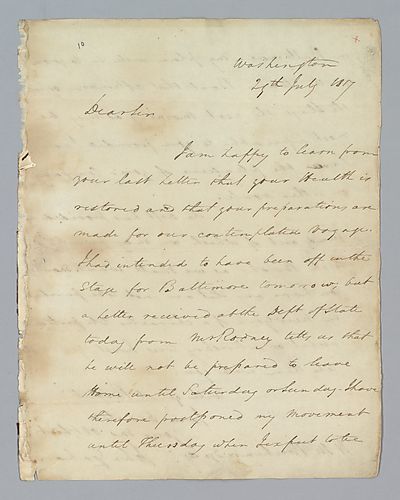 10
Washington
29th July 1817
Dear Sir
I am happy to learn from
your last letter that your Health is
restored and that your preparations are
made for our contemplated Voyage.
I had intended to have been off in the
Stage for Baltimore tomorrow, but
a letter received at the Dept of State
today from Mr Rodney tells us that
he will not be prepared to leave
Home until Saturday or Sunday. I have
therefore postponed my movement
until Thursday when I expect to be